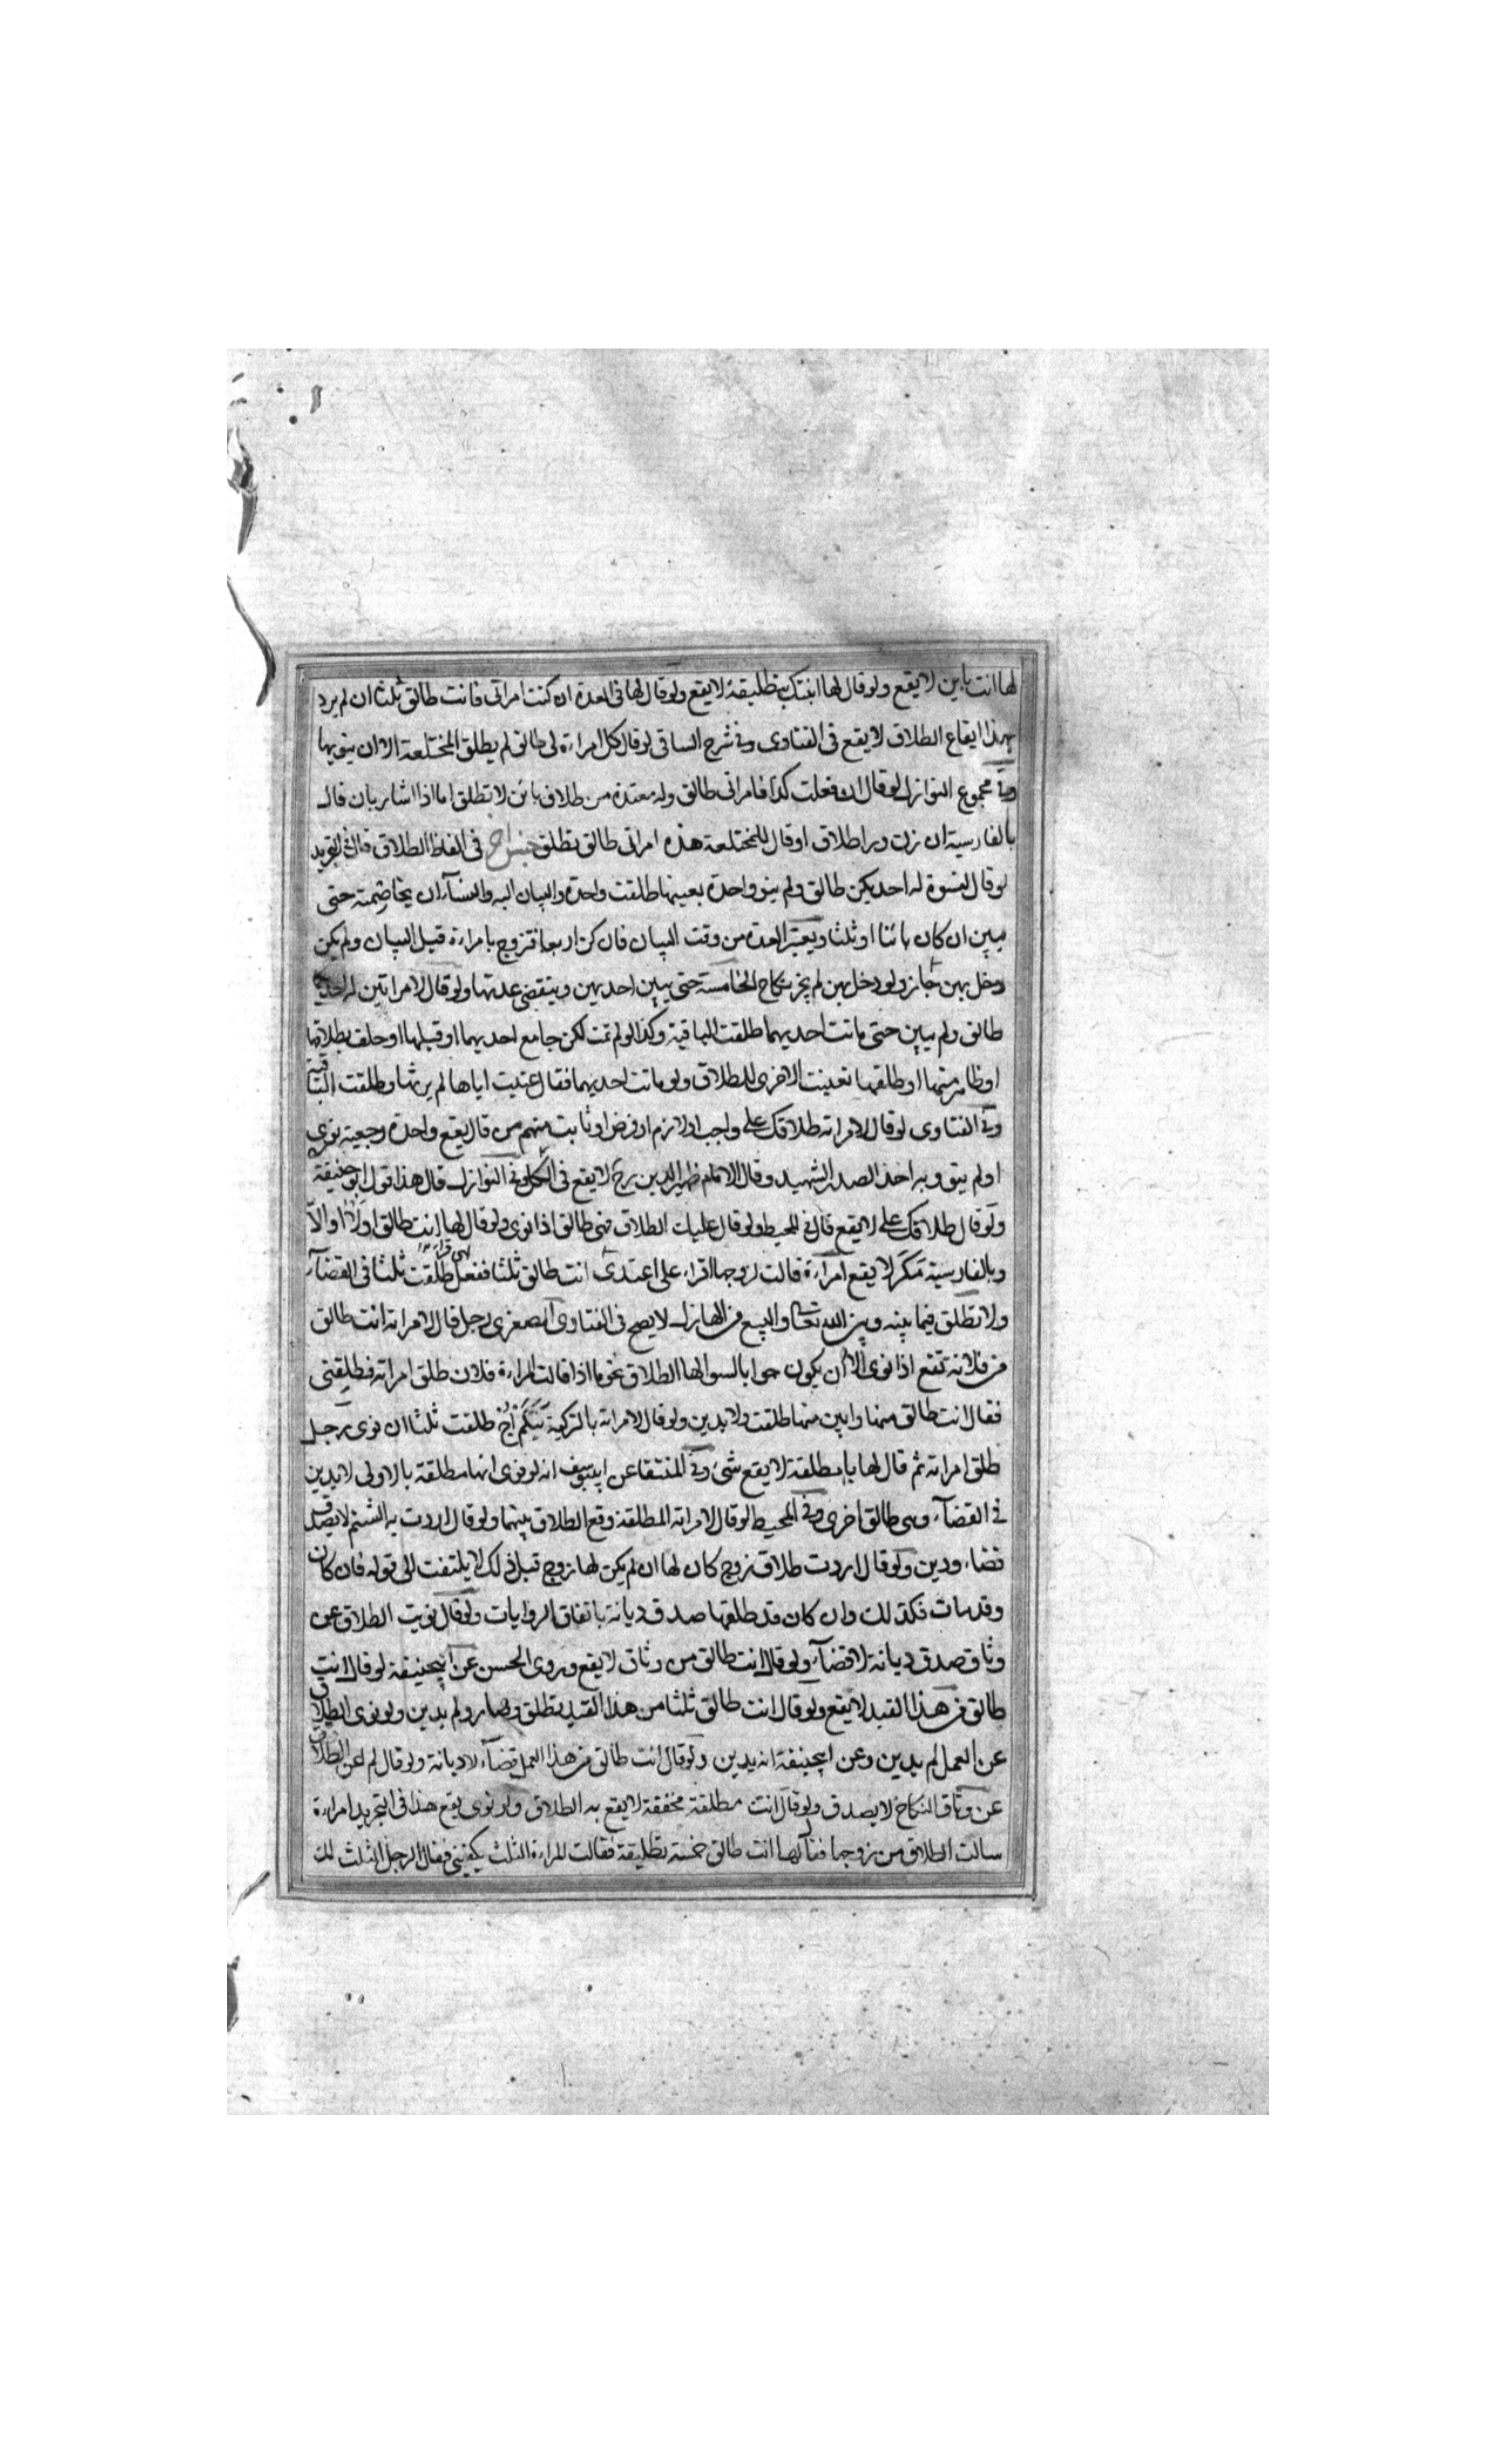 لها انت باين لا يقع ولو قال لها ابنتك بتطليقة لا يقع ولو قال لها فى العدة ان كنت امراتى فانت طالق ثلثا ان لم يرد
بهذا ايقاع الطلاق لا يقع فى الفتاوى وفى شرح الساقى لو قال كل امراءة لى طالق لم يطلق المختلعة الا ان ينويها
وفى مجموع النوازل لو قال ان فعلت كذا فامراتى طالق وله معتدة من طلاق بائن لا تطلق اما اذا اشار بان قال
بالفارسية ان زن ويرا طلاق او قال للمختلعة هذه امراتى طالق تطلق جنس اخر فى الفاظ الطلاق قال فى التجريد
لو قال لنسوة له احديكن طالق ولم ينو واحدة بعينها طلقت واحدة والبيان اليه والنسآء ان يخاصمنه حتى
يبين ان كان بائنا او ثلثا ويعتبر العدة من وقت البيان فان كن اربعا فتزوج بامراءة قبل البيان ولم يكن
دخل بهن جاز ولو دخل بهن لم يجز نكاح الخامسة حتى يبين احديهن وينقضى عدتها ولو قال لامراتين له احديكما
طالق ولم يبين حتى ماتت احديهما طلقت الباقية وكذا لو لم تمت لكن جامع احديهما او قبلها او حلف بطلاقها
او ظاهر منها او طلقها تعينت الاخرى للطلاق ولو ماتت احديهما فقال عنيت اياها لم يرثها وطلقت الباقية
وفى الفتاوى لو قال لامراته طلاقك على واجب او لازم او فرض او ثابت منهم من قال يقع واحدة رجعية نوى
او لم ينو وبه اخذ الصدر الشهيد وقال الامام ظهير الدين رح لا يقع فى الكل وفى النوازل قال هذا قول ابو حنيفة
ولو قال طلاقك على لا يقع قال فى المحيط ولو قال عليك الطلاق فهى طالق اذا نوى ولو قال لها انت طالق او لا او الا
وبالفارسية مَكَر لا يقع امراءة قالت لزوجها اقراء على اعتدى انت طالق ثلثا ففعل طلقت ثلثا فى القضآء
ولا تطلق فيما بينه وبين الله تعالى والبيع من الهازل لا يصح فى الفتاوى الصغرى رجل قال لامراته انت طالق
من فلانه تقع اذا نوى الا ان يكون جوابا لسوالها الطلاق نحو ما اذا قالت المراءة فلان طلق امراته فطلقنى
فقال انت طالق منها وابين منها طلقت ولا يدين ولو قال لامراته بالتركية اج طلقت ثلثا ان نوى رجل
طلق امراته ثم قال لها يا مطلقة لا يقع شئ وفى المنتقا عن ابيوسف انه لو نوى انها مطلقة بالاولى لا يدين
فى القضآء وهى طالق اخرى وفى المحيط لو قال لامراته المطلقة وقع الطلاق بينهما ولو قال اردت به الشتم لا يصدق
قضاء ودين ولو قال اردت طلاق زوج كان لها ان لم يكن لها زوج قبل ذلك لا يلتفت الى قوله فان كان
وقد مات فكذلك وان كان قد طلقها صدق ديانة باتفاق الروايات ولو قال نويت الطلاق عن
وثاق صدق ديانة لا قضآء ولو قال انت طالق من وثاق لا يقع وروى الحسن عن ابيحنيفة لو قال انت
طالق من هذا القيد لا يقع ولو قال انت طالق ثلثا من هذا القيد تطلق ولم يدين ولو نوى الطلاق
عن العمل لم يدين وعن ابيحنيفة انه يدين ولو قال انت طالق من هذا العمل قضآء لا ديانة ولو قال لم اعن الطلاق
عن وثاق النكاح لا يصدق ولو قال انت مطلقة مخففة لا يقع به الطلاق ولو نوى يقع هذا فى التجريد امراءة
سالت الطلاق من زوجها فقال لها انت طالق خمسة تطليقة فقالت المراءة الثلث يكفينى فقال الرجل الثلث لك